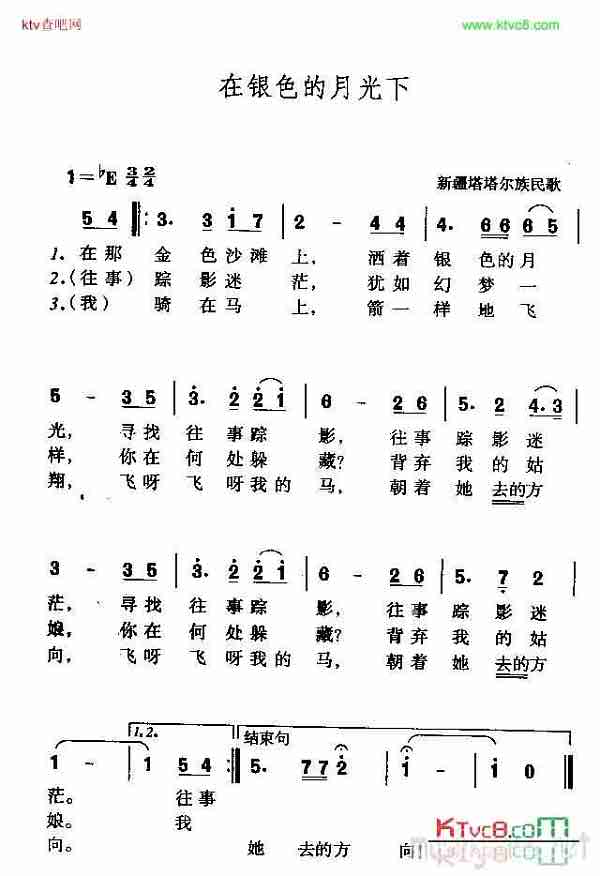 ktv查吧网
www.ktvc8.com
在银色的月光下
1=♭E 3/4 2/4
新疆塔塔尔族民歌
5 4 ‖: 3. 3 i 7 | 2 - 4 4 | 4. 6 6 6 5 |
1. 在那 金 色沙滩 上, 洒着 银 色的月
2.(往事)踪 影迷 茫, 犹如 幻 梦一
3.(我) 骑 在马 上, 箭一 样 地飞
5 - 3 5 | 3. 2 2 i | 6 - 2 6 | 5. 2 4. 3 |
光, 寻找 往 事踪 影, 往事 踪 影迷
样, 你在 何 处躲 藏? 背弃 我 的姑
翔, 飞呀 飞 呀我的 马, 朝着 她 去的方
3 - 3 5 | 3. 2 2 i | 6 - 2 6 | 5. 7 2 |
茫, 寻找 往 事踪 影, 往事 踪 影迷
娘, 你在 何 处躲 藏? 背弃 我 的姑
向, 飞呀 飞 呀我的 马, 朝着 她 去的方
1.2. 结束句
1 - | 1 5 4 :‖ 5. 7 7 2 | i - | i 0 ‖
茫。 往事
娘。 我
向。 她 去的方 向!
KTvc8.com